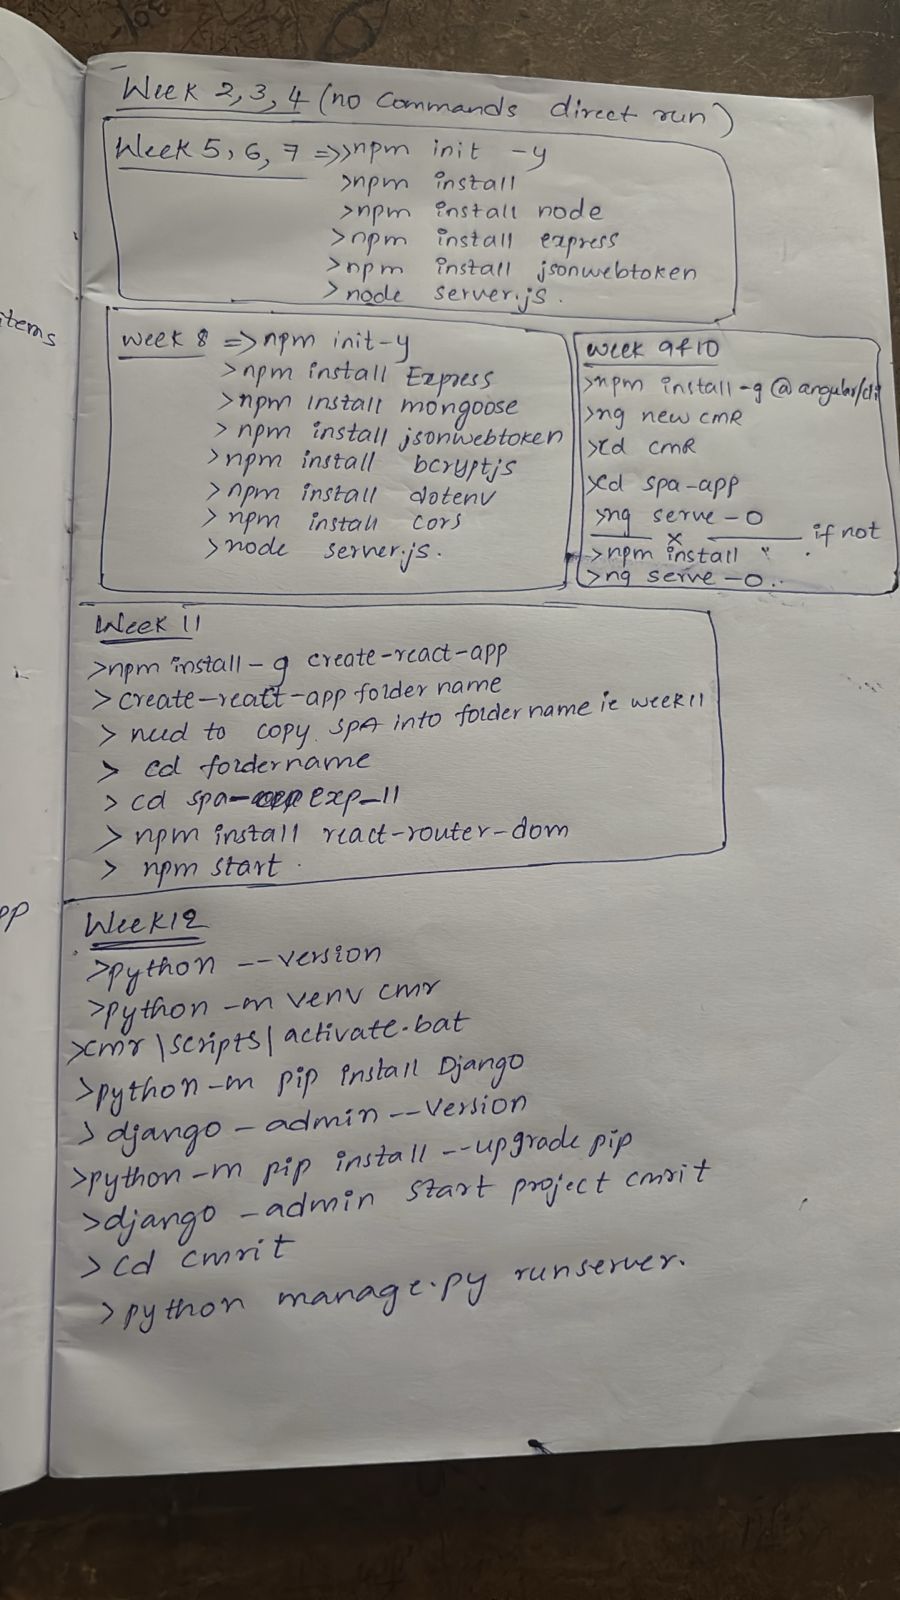 Week 2, 3, 4 (no commands direct run)
Week 5, 6, 7 =>>npm init -y
>npm install
>npm install node
>npm install express
>npm install jsonwebtoken
>node server.js.
tems
week 8 =>npm init-y
>npm install Express
>npm install mongoose
>npm install jsonwebtoken
>npm install bcryptjs
>npm install dotenv
>npm install cors
>node server.js.
week 9&10
>npm install -g @angular/cli
>ng new cmR
>cd cmR
>cd spa-app
>ng serve -o
x if not
>npm install
>ng serve -o..
Week 11
>npm install -g create-react-app
>create-react-app folder name
> need to copy SPA into folder name ie week11
> cd foldername
> cd spa-exp_11
> npm install react-router-dom
> npm start.
pp
Week12
>python --version
>python -m venv cmr
>cmr\scripts\activate.bat
>python -m pip install Django
> django -admin --version
>python -m pip install --upgrade pip
>django -admin start project cmrit
> cd cmrit
>python manage.py runserver.